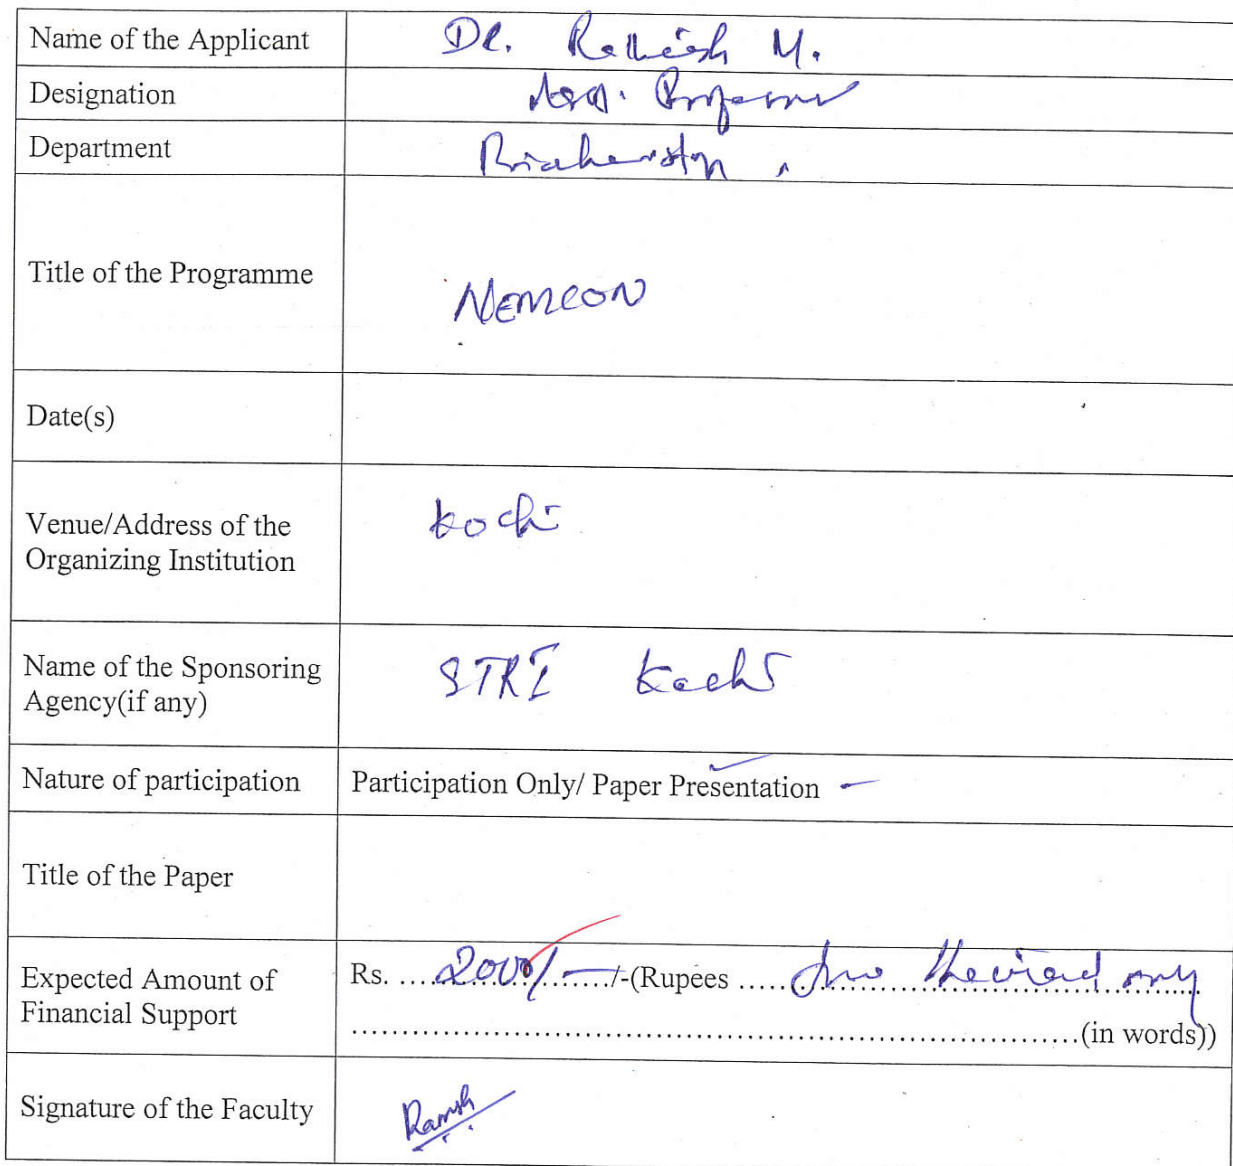 Name of the Applicant Dr. Ramesh M.
Designation Asso. Professor
Department
Title of the Programme NEMCON
Date(s)
Venue/Address of the
Organizing Institution
Kochi
Name of the Sponsoring
Agency(if any)
STRI Kochi
Nature of participation Participation Only/ Paper Presentation
Title of the Paper
Expected Amount of
Financial Support
Rs. ....2000/-......../-(Rupees .....Two thousand only
....................................................................(in words))
Signature of the Faculty Ramesh